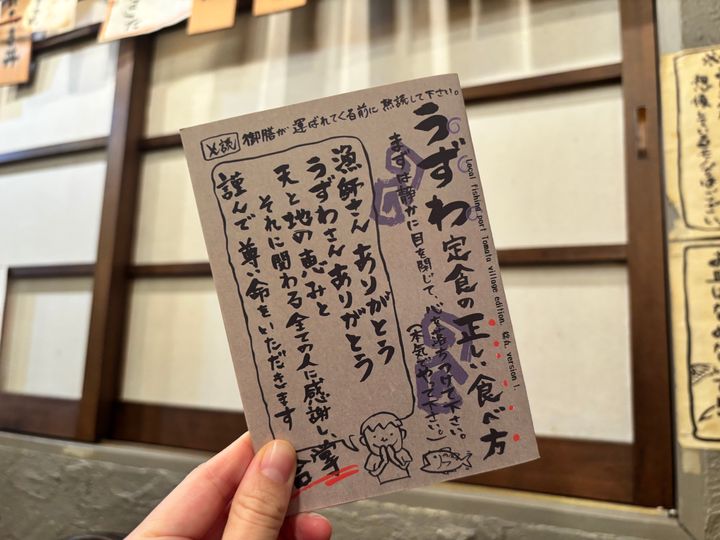 必読 御膳が運ばれてくる前に熟読して下さい。
うずわ定食の正しい食べ方
Local fishing port Tomato village edition. ver. version 1.
まずは静かに目を閉じて、心を落ちつけて下さい。
(本気でやって下さい。)
漁師さん ありがとう
うずわさん ありがとう
天と地の恵みと
それに関わる全ての人に感謝し、
謹んで尊い命をいただきます
合掌